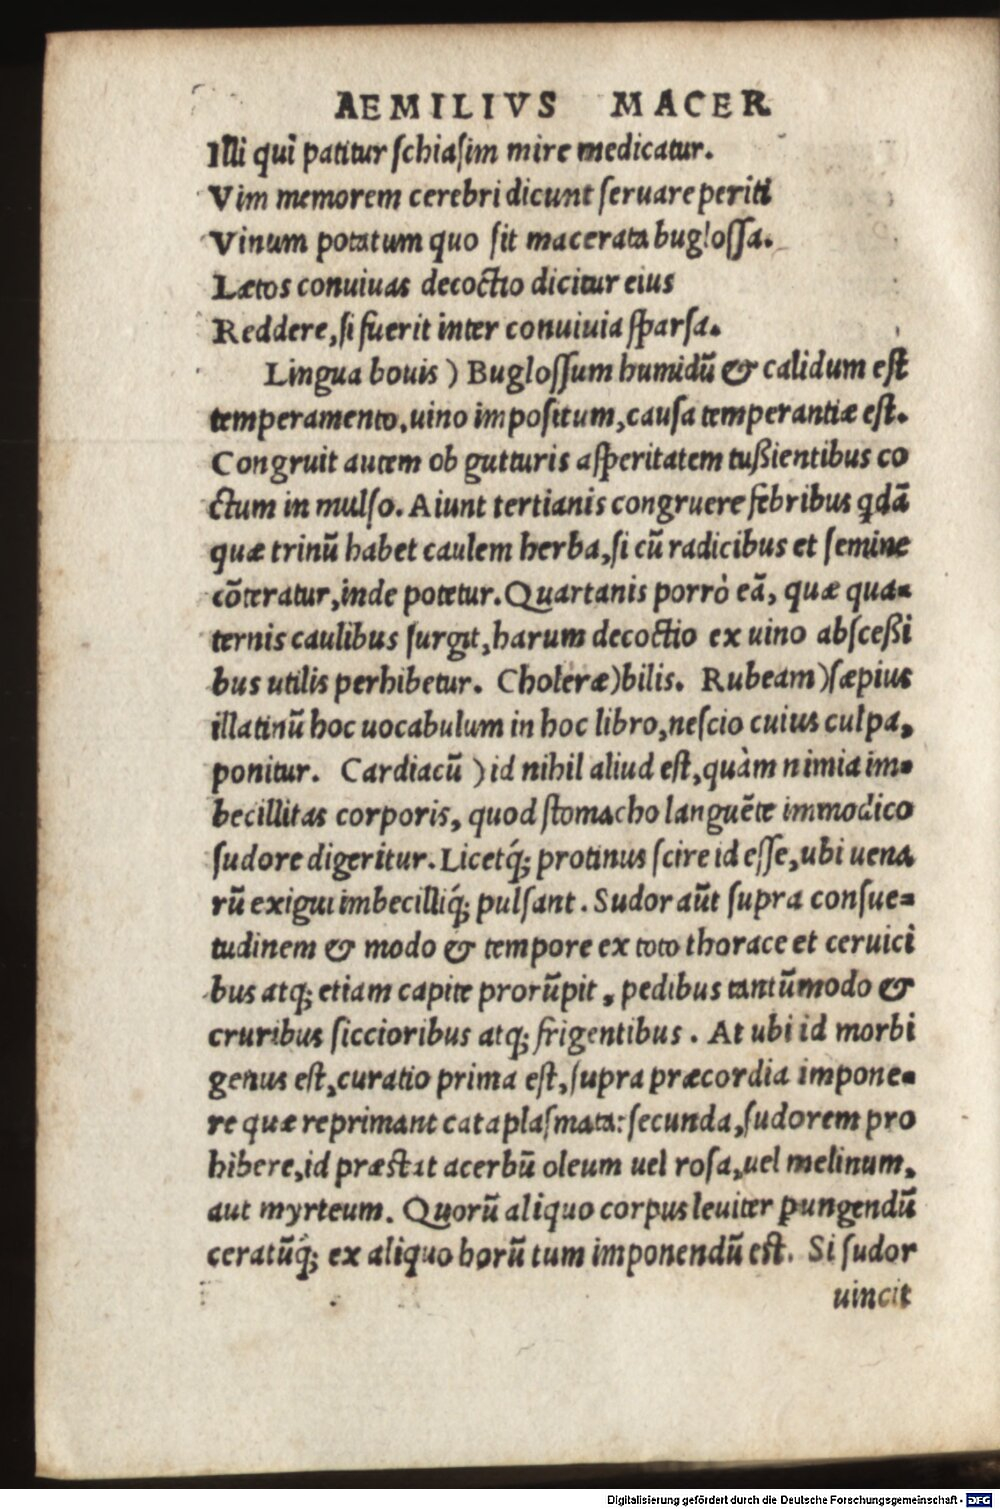 AEMILIVS MACER
Illi qui patitur schiasim mire medicatur.
Vim memorem cerebri dicunt seruare periti
Vinum potatum quo sit macerata buglossa.
Lætos conuiuas decoctio dicitur eius
Reddere, si fuerit inter conuiuia sparsa.
Lingua bouis) Buglossum humidũ & calidum est
temperamento, uino impositum, causa temperantiæ est.
Congruit autem ob gutturis asperitatem tußientibus co
ctum in mulso. Aiunt tertianis congruere febribus qdã
quæ trinũ habet caulem herba, si cũ radicibus et semine
cõteratur, inde potetur. Quartanis porrò eã, quæ qua=
ternis caulibus surgit, harum decoctio ex uino absceßi
bus utilis perhibetur. Choleræ) bilis. Rubeam) sæpius
illatinũ hoc uocabulum in hoc libro, nescio cuius culpa,
ponitur. Cardiacũ) id nihil aliud est, quàm nimia im=
becillitas corporis, quod stomacho languẽte immodico
sudore digeritur. Licetq́; protinus scire id esse, ubi uena
rũ exigui imbecilliq́; pulsant. Sudor aũt supra consue=
tudinem & modo & tempore ex toto thorace et ceruici
bus atq; etiam capite prorũpit, pedibus tantũmodo &
cruribus siccioribus atq; frigentibus. At ubi id morbi
genus est, curatio prima est, supra præcordia impone=
re quæ reprimant cataplasmata: secunda, sudorem pro
hibere, id præstat acerbũ oleum uel rosa, uel melinum,
aut myrteum. Quorũ aliquo corpus leuiter pungendũ
ceratũq́; ex aliquo horũ tum imponendũ est. Si sudor
uincit
Digitalisierung gefördert durch die Deutsche Forschungsgemeinschaft - DFG